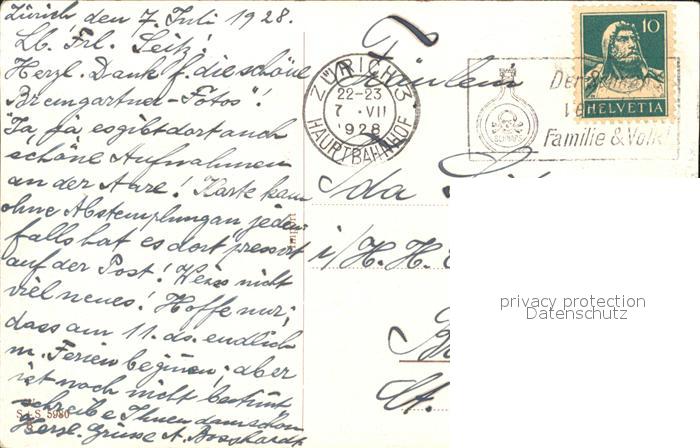 Zürich, den 7. Juli 1928.
Lb. Frl. Seitz!
Herzl. Dank f. die schöne
Bremgartner-Fotos"!
Ja, ja, es gibt dort auch
schöne Aufnahmen
an der Aare! Karte kam
ohne Abstemplung an, jeden-
falls hat es dort pressiert
auf der Post! Weiss nicht
viel neues! Hoffe nur,
dass am 11. ds. endlich
m. Ferien beginnen; aber
ist noch nicht bestimt
schreibe Ihnen dann schon
Herzl. Grüsse A. Bosshardt
S+S 5980
ZÜRICH 3
22-23
7.VII
1928
HAUPTBAHNHOF
Der
Familie & Volk!
10
HELVETIA
Fräulein
Ida
i/H. H.
St.
privacy protection
Datenschutz